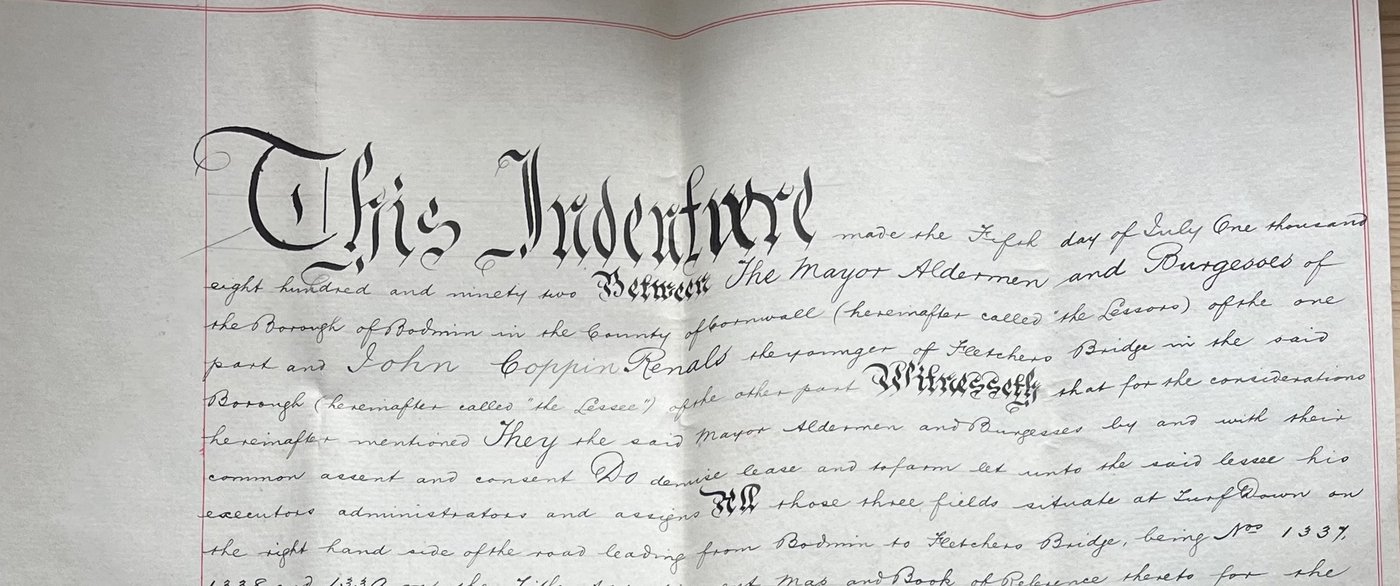 This Indenture made the Fifth day of July One thousand
eight hundred and ninety two Between The Mayor Aldermen and Burgesses of
the Borough of Bodmin in the County of Cornwall (hereinafter called "the Lessors) of the one
part and John Coppin Renals the younger of Fletchers Bridge in the said
Borough (hereinafter called "the Lessee") of the other part Witnesseth that for the considerations
hereinafter mentioned They the said Mayor Aldermen and Burgesses by and with their
common assent and consent Do demise lease and to farm let unto the said lessee his
executors administrators and assigns All those three fields situate at Turf Down on
the right hand side of the road leading from Bodmin to Fletchers Bridge, being Nos 1337,
1338 and 1339 the Map and Book of Reference thereto for the